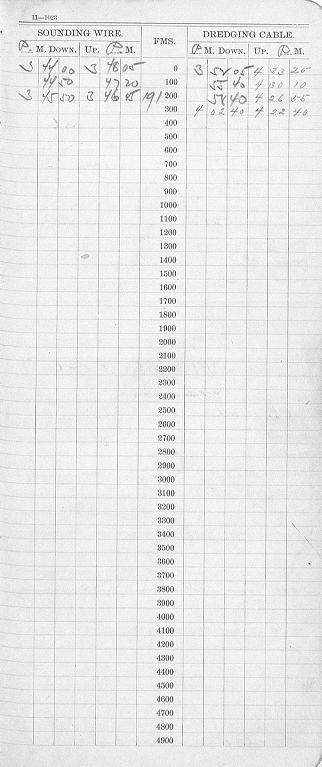 11—1023
SOUNDING WIRE. FMS. DREDGING CABLE.
P. M. DOWN. UP. P. M. P. M. DOWN. UP. P. M.
3 44 00 3 48 05 0 3 05 4 33 25
44 50 47 20 100 40 4 30 10
3 45 50 3 46 191 200 40 4 26 55
300 4 02 40 4 22 40
400
500
600
700
800
900
1000
1100
1200
1300
1400
1500
1600
1700
1800
1900
2000
2100
2200
2300
2400
2500
2600
2700
2800
2900
3000
3100
3200
3300
3400
3500
3600
3700
3800
3900
4000
4100
4200
4300
4400
4500
4600
4700
4800
4900